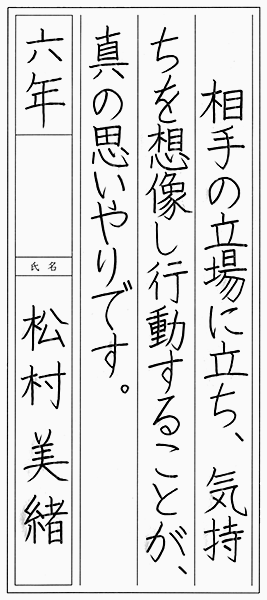 相手の立場に立ち、気持
ちを想像し行動することが、
真の思いやりです。
六年
氏名
松村美緒